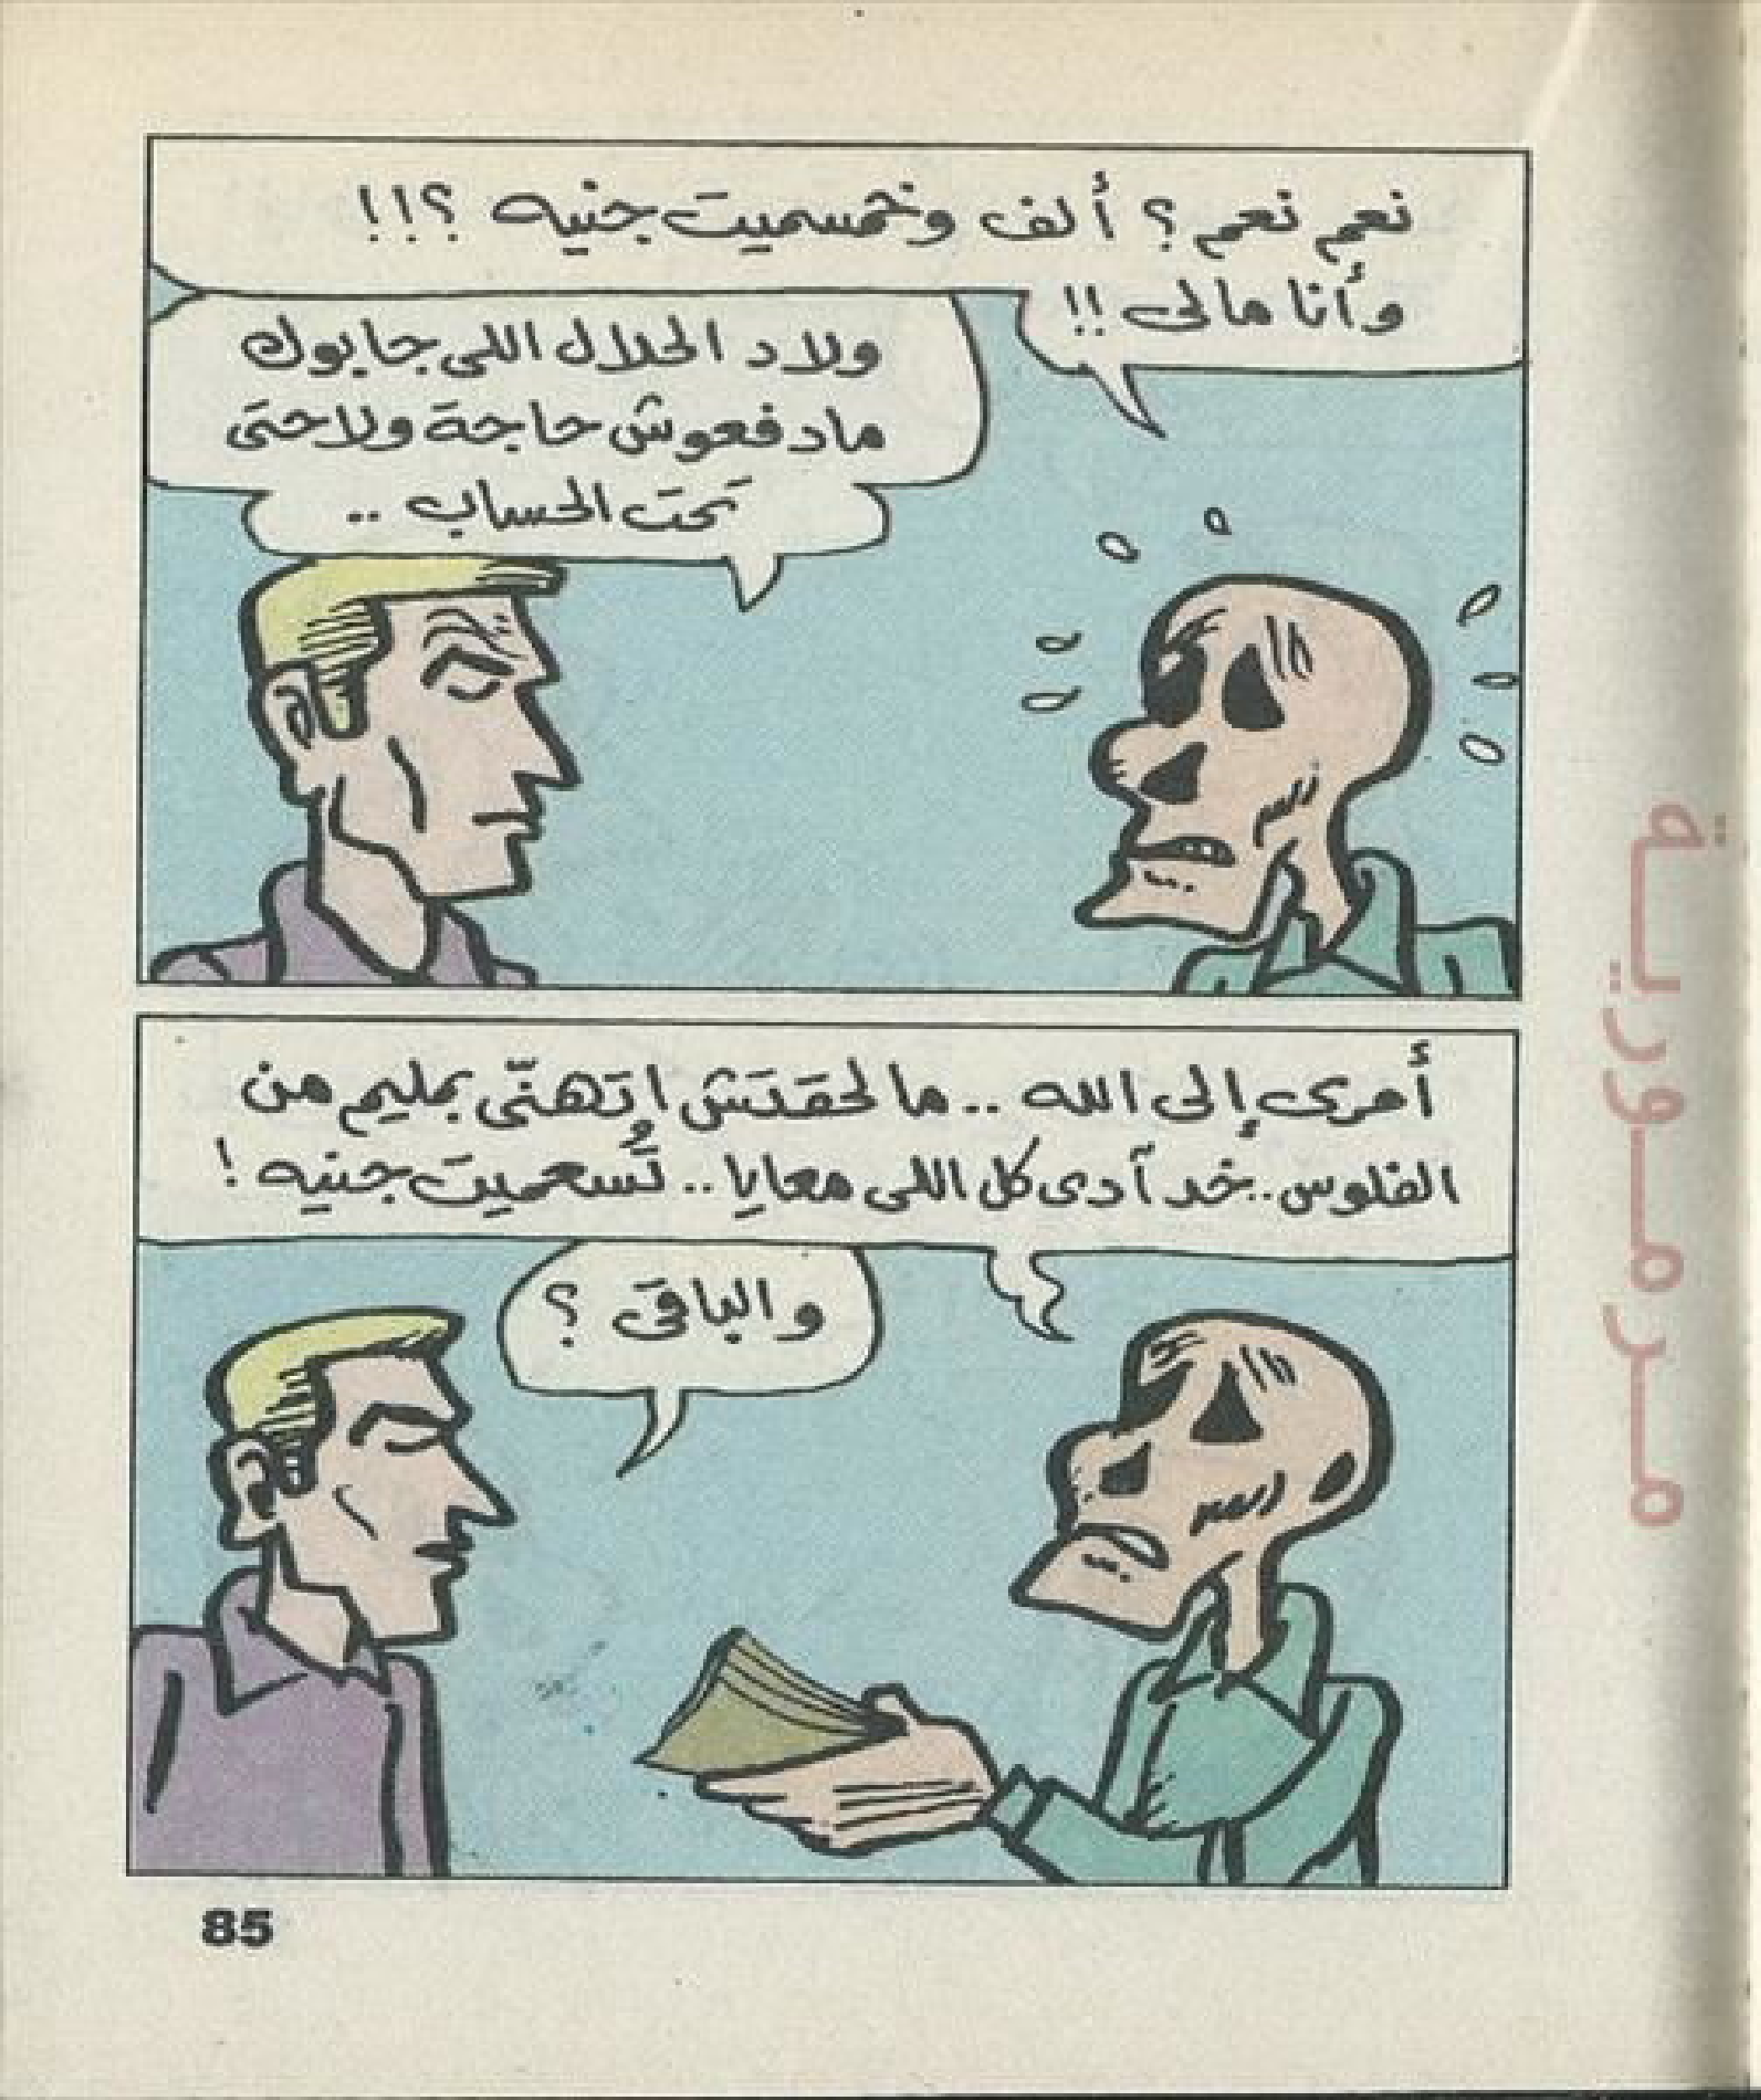 نعم نعم ؟ ألف وخمسميت جنيه ؟!!
وأنا مالى !!
ولاد الحلال اللى جابوك
مادفعوش حاجة ولاحتى
تحت الحساب ..
أمرى إلى الله .. مالحقتش اتهنّى بمليم من
الفلوس .. خد آدى كل اللى معايا .. تُسعميت جنيه !
والباقى ؟
85
مرمورية